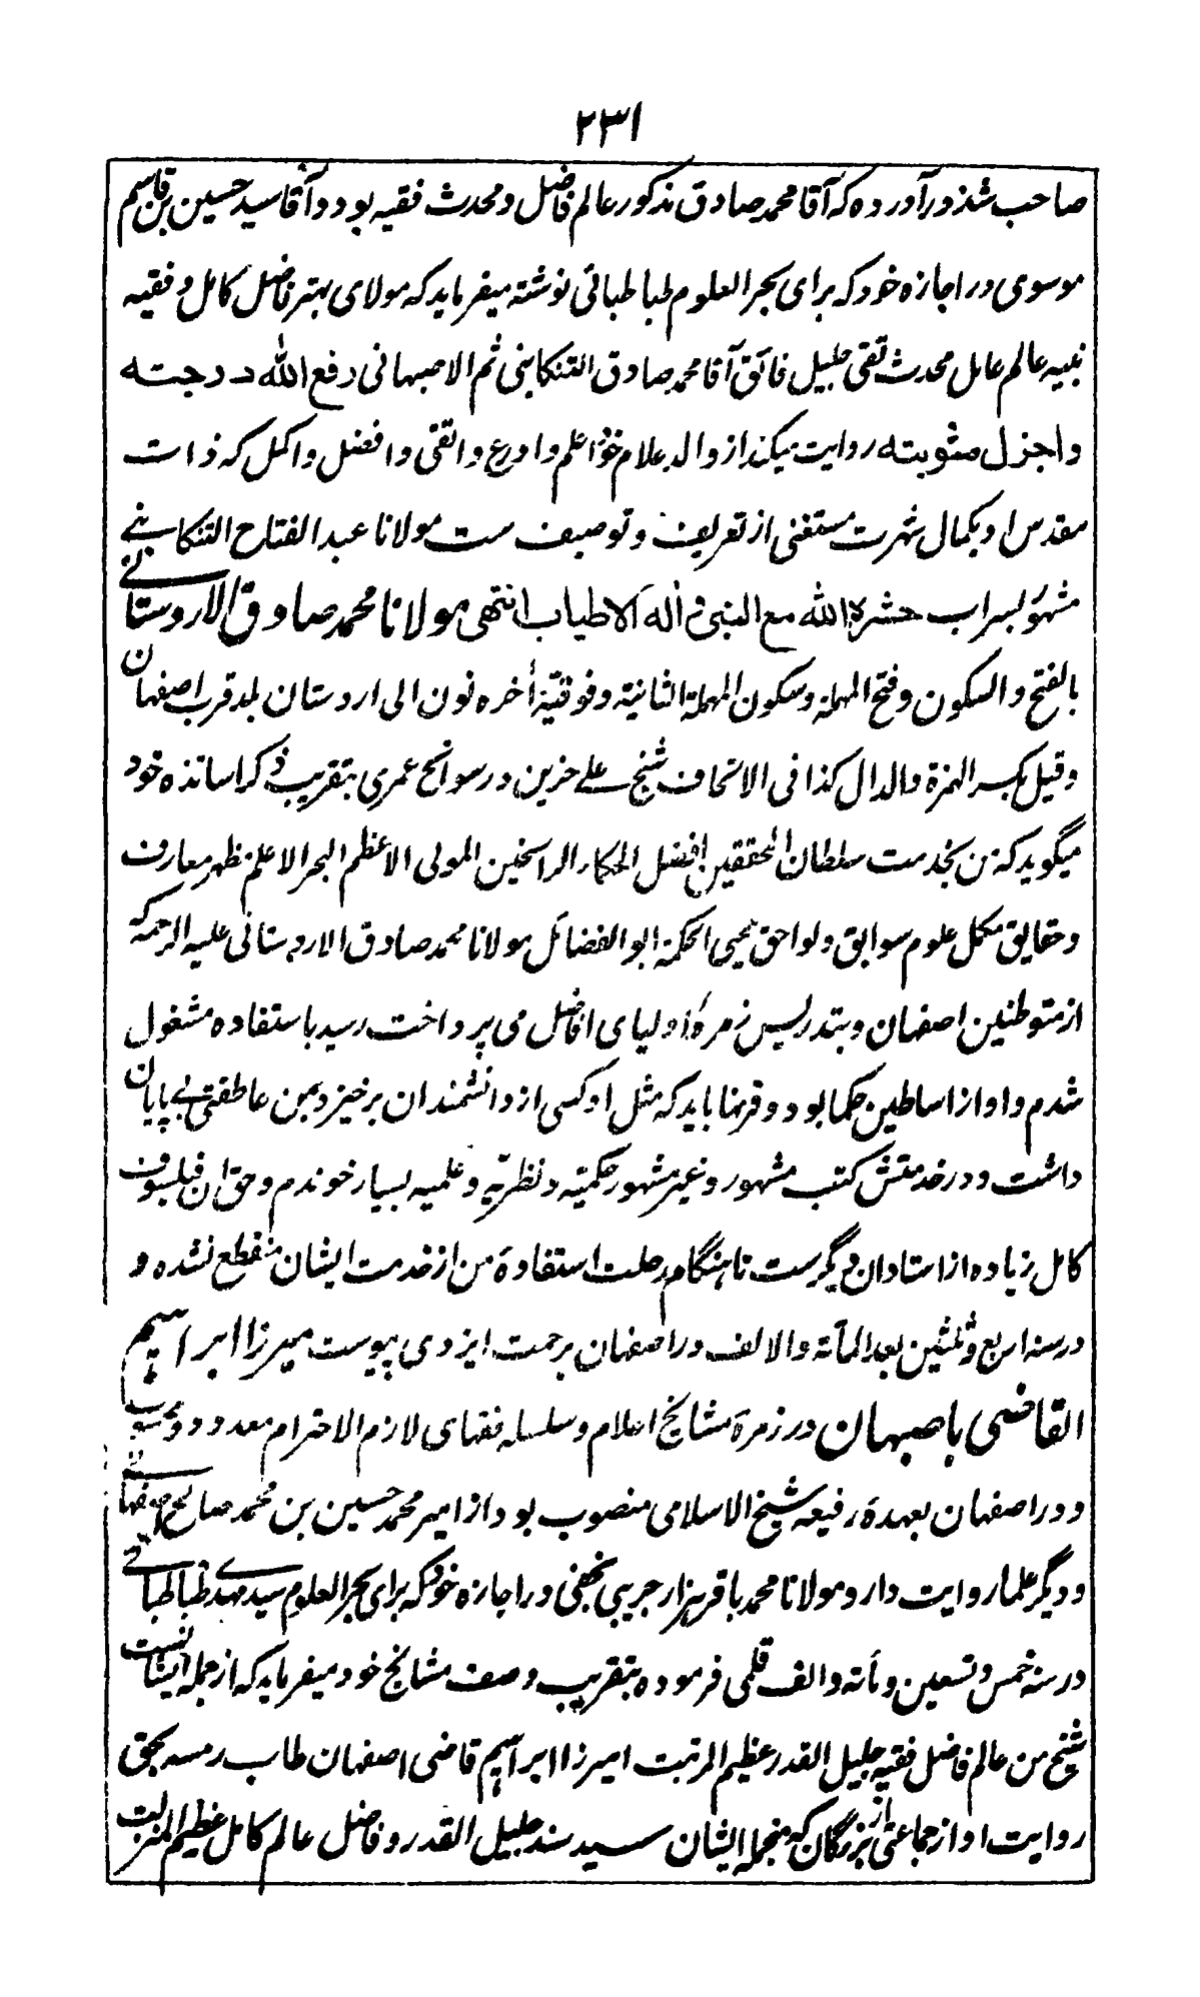 ٢٣١
صاحب شذور آورده که آقا محمد صادق مذکور عالم فاضل و محدث فقیه بود و آقا سید حسین بن قاسم
موسوی در اجازه خود که برای بحر العلوم طباطبائی نوشته میفرماید که مولای بهتر فاضل کامل و فقیه
نبیه عالم عامل محدث تقی جلیل فائق آقا محمد صادق التنکابنی ثم الاصبهانی رفع الله درجته
و اجزل مثوبته روایت میکند از والد علام خود اعلم و اورع و اتقی و افضل و اکمل که ذات
مقدس او بکمال شهرت مستغنی از تعریف و توصیف ست مولانا عبد الفتاح التنکابنے
مشهور بسراب حشره الله مع النبی و آله الاطیاب انتهی مولانا محمد صادق الاردستانے
بالفتح و السکون و فتح المهملة و سکون المهملة الثانیة و فوقیة أخره نون الی اردستان بلد قرب اصفهان
و قیل بکسر الهمزة و الدال کذا فی الاتحاف شیخ علے حزین در سوانح عمری بتقریب ذکر اساتذه خود
میگوید که من بخدمت سلطان المحققین افضل الحکماء الراسخین المولی الاعظم البحر الاعلم مظهر معارف
و حقایق مکمل علوم سوابق و لواحق محیی الحکمة ابو الفضائل مولانا محمد صادق الاردستانی علیه الرحمه که
از متوطنین اصفهان و بتدریس زمرهٔ اولیای افاضل می پرداخت رسید باستفاده مشغول
شدم و او از اساطین حکما بود و قرنها باید که مثل او کسی از دانشمندان برخیزد بمن عاطفتی بے پایان
داشت و در خدمتش کتب مشهور و غیر مشهور حکمیه و نظریه و علمیه بسیار خوندم و حق ان فیلسوف
کامل زیاده از استادان دیگرست تا هنگام رحلت استفادۀ من از خدمت ایشان منقطع نشده و
در سنه اربع و ثلثین بعد المأته و الالف در اصفهان برحمت ایزدی پیوست میرزا ابراهیم
القاضی باصبهان در زمرۀ مشائخ اعلام و سلسله فقهای لازم الاحترام معدود و محسوب
و در اصفهان بعهدۀ رفیعه شیخ الاسلامی منصوب بود از امیر محمد حسین بن محمد صالح اصفهانے
و دیگر علما روایت دارد مولانا محمد باقر هزار جریبی نجفی در اجازه خود که برای بحر العلوم سید مهدے طباطبائے
در سنه خمس و تسعین و مأته و الف قلمی فرموده بتقریب وصف مشائخ خود میفرماید که از جمله ایشانست
شیخ من عالم فاضل فقیه جلیل القدر عظیم المرتبت امیرزا ابراهیم قاضی اصفهان طاب رمسه بحق
روایت او از جماعتی از بزرگان که منجمله ایشان سید سند جلیل القدر و فاضل عالم کامل عظیم المنزلت